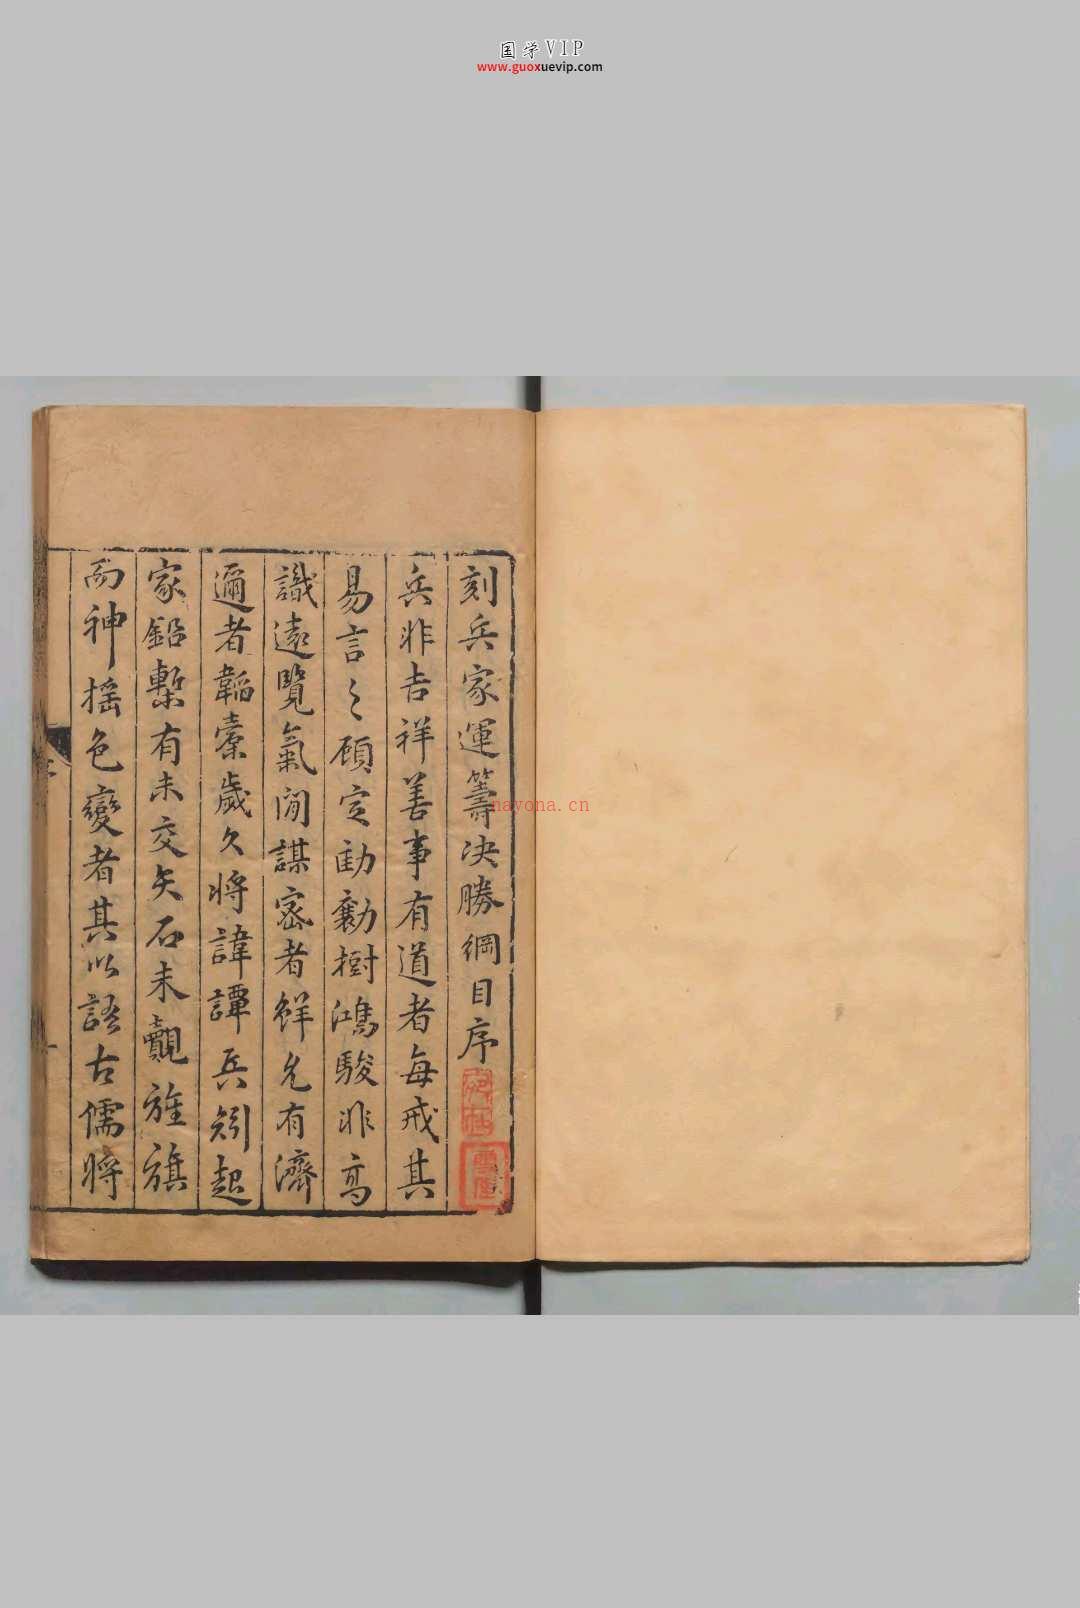 国学VIP
www.guoxuevip.com
刻兵家運籌决勝綱目序
兵非吉祥善事有道者每戒其
易言之顧定勣勷樹鴻駿非高
識遠覽氣閒謀密者鮮克有濟
邇者韜櫜歲久將諱譚兵矧起
家鉛槧有未交矢石未覿旌旗
而神搖色變者其以語古儒將
nayona.cn